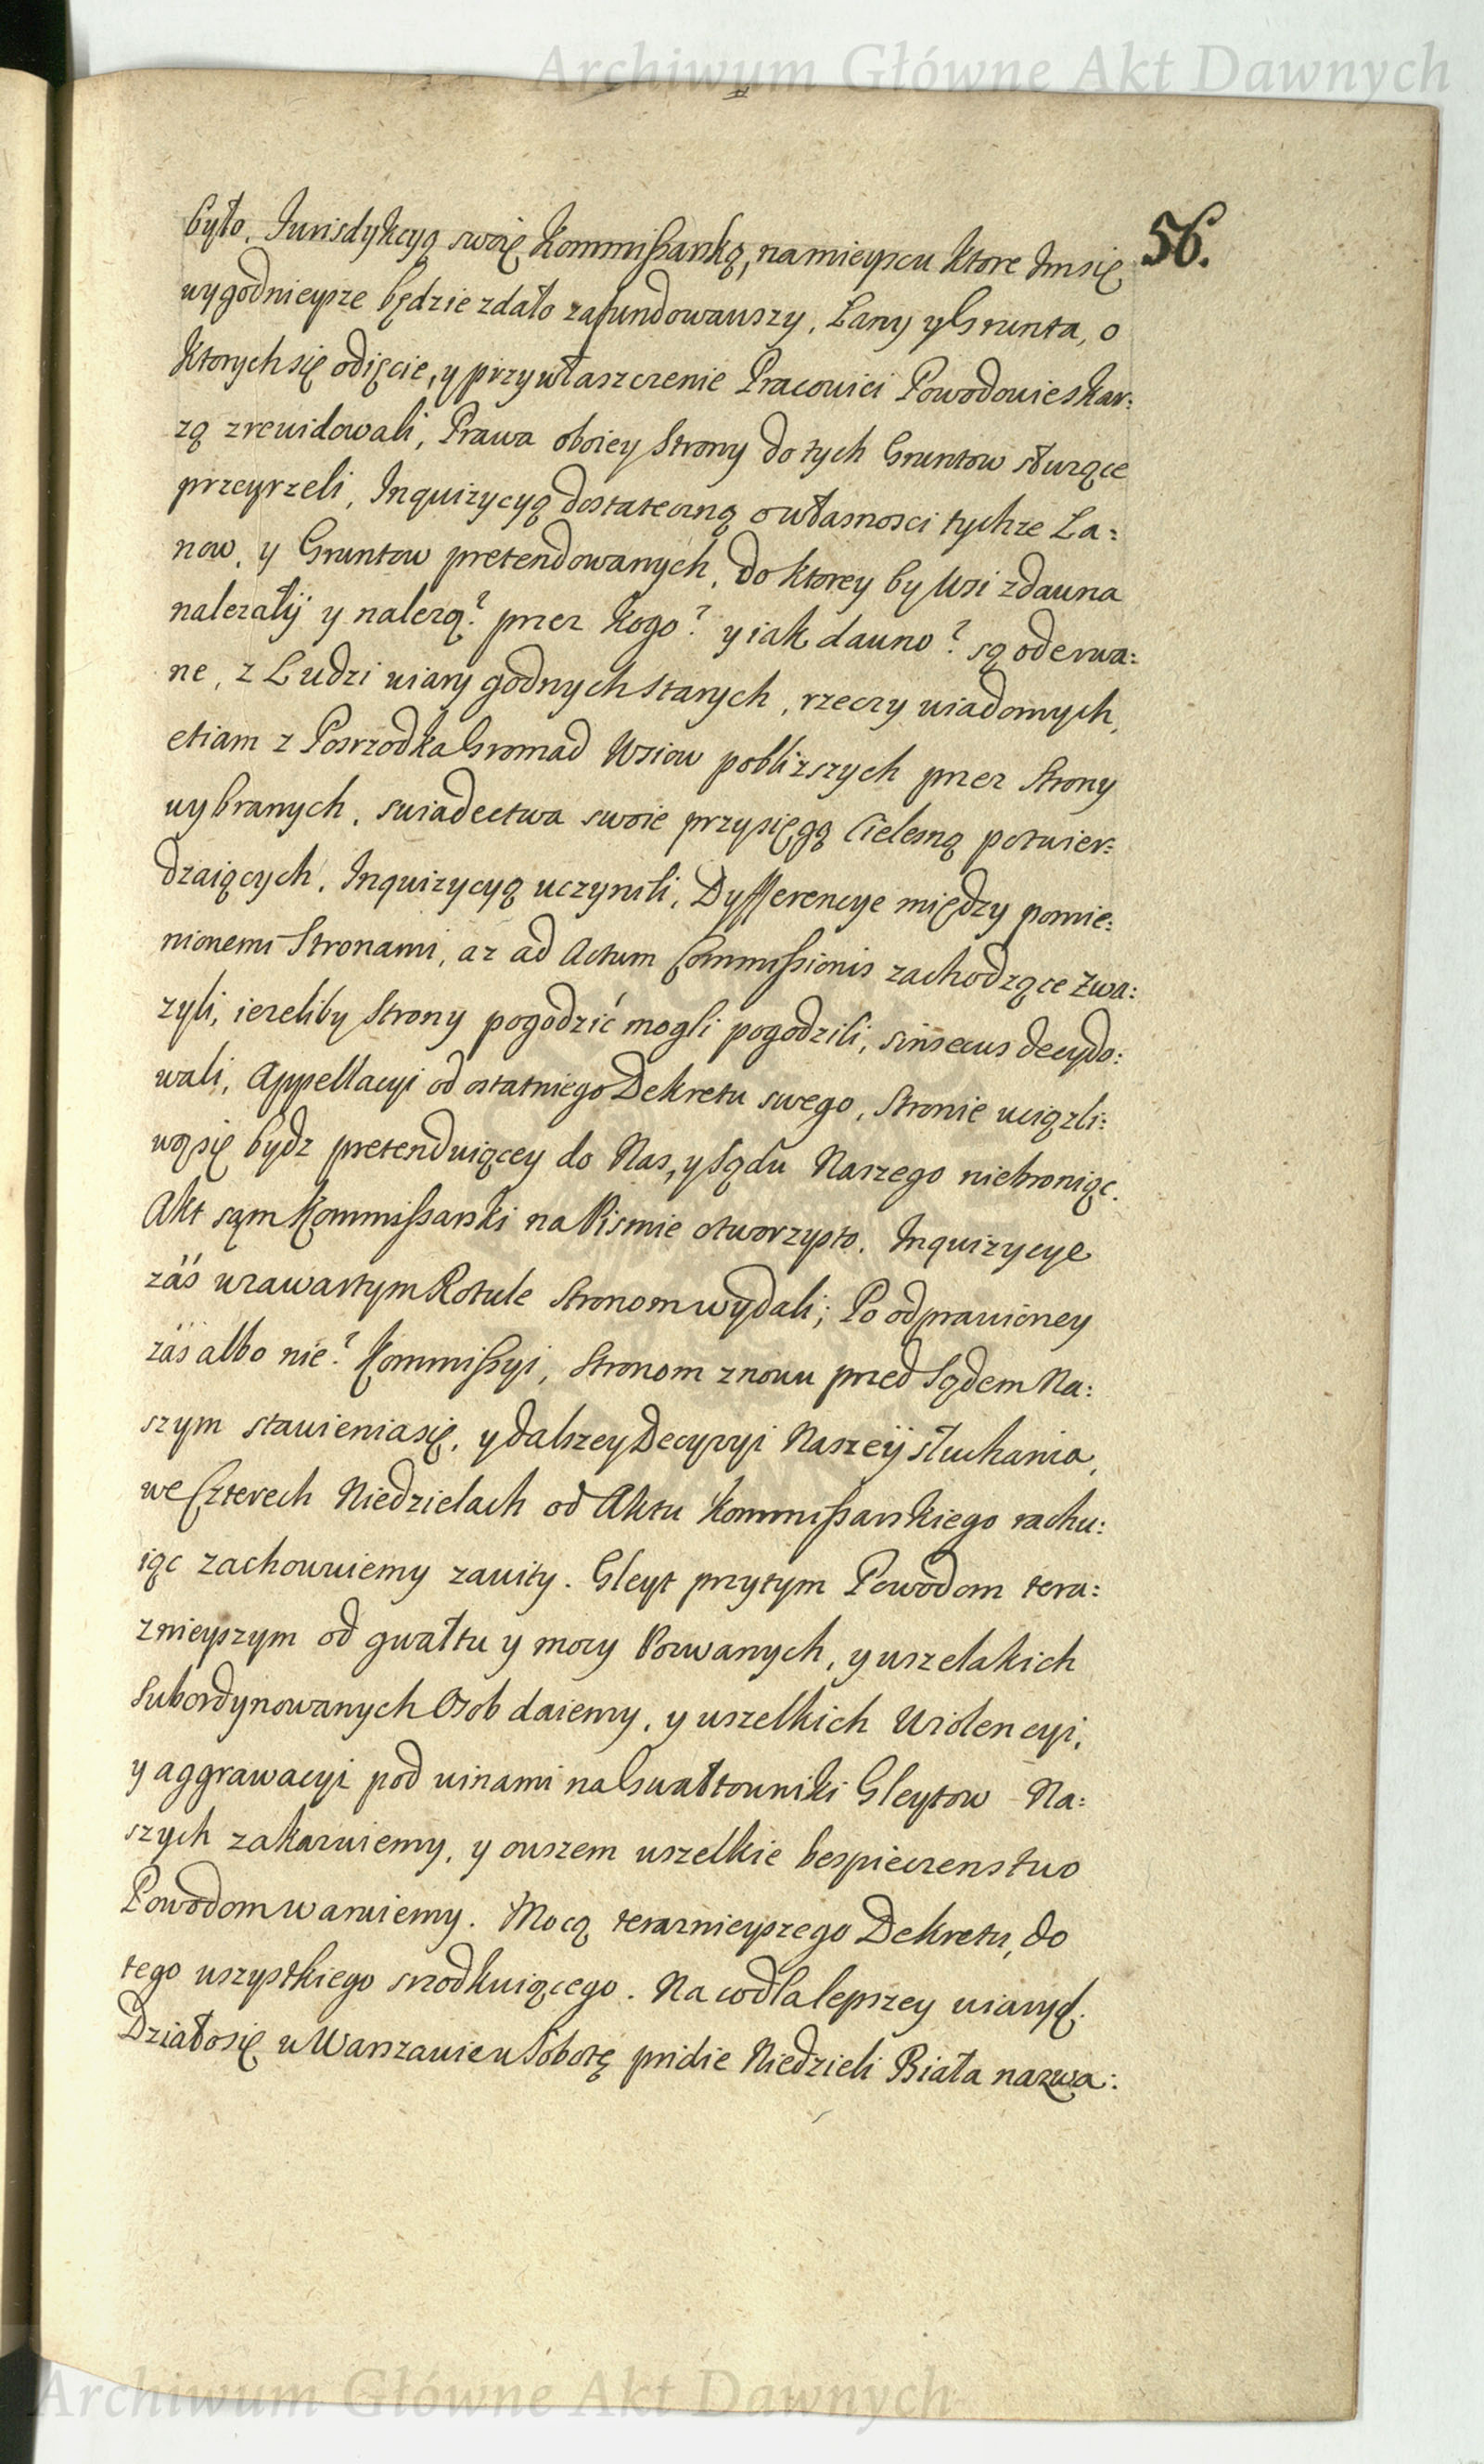 Archiwum Główne Akt Dawnych
56.
było, Jurisdykcyą swoię Kommissarską, na mieyscu ktore Im się
wygodnieysze będzie zdało zafundowawszy, Łany y Grunta, o
ktorych się odięcie, y przywłaszczenie Pracowici Powodowie skar:
zą zrewidowali, Prawa oboiey Strony do tych Gruntow służące
przeyrzeli, Inquizycyą dostateczną o własnosci tychze Ła:
now, y Gruntow pretendowanych, do ktorey by Wsi zdawna
nalezały y nalezą? przez kogo? y iak dawno? są oderwa:
ne, z Ludzi wiary godnych starych, rzeczy wiadomych,
etiam z Posrzodka Gromad Wsiow pobliższych przez Strony
wybranych, swiadectwa swoie przysięgą Cielesną potwier:
dzaiących, Inquizycyą uczynili, Dyfferencye między pomie:
nionemi Stronami, az ad Actum Commissionis zachodzące zwa:
zyli, iezeliby Strony pogodzić mogli pogodzili, sinsecus decydo:
wali, Appellacyi od ostatniego Dekretu swego, Stronie uciązli:
wą się bydz pretenduiącey do Nas, y Sądu Naszego niebroniąc.
Akt sąm Kommissarski na Pismie otworzysto, Inquizycye
zaś w zawartym Rotule Stronom wydali; Po odprawioney
zaś albo nie? Kommissyi, Stronom znowu przed Sądem Na:
szym stawienia się, y dalszey Decyzyi Naszey słuchania,
we Czterech Niedzielach od Aktu Kommissarskiego rachu:
iąc zachowuiemy zawity. Gleyt przytym Powodom tera:
znieyszym od gwałtu y mocy Pozwanych, y wszelakich
Subordynowanych Osob daiemy, y wszelkich Violencyi,
y aggrawacyi pod winami na Gwałtowniki Gleytow Na:
szych zakazuiemy, y owszem wszelkie bespieczenstwo
Powodom waruiemy. Mocą teraznieyszego Dekretu, do
tego wszystkiego srzodkuiącego. Na co dla lepszey wiary &.
Działo się w Warszawie w Sobotę pridie Niedzieli Biała nazwa:
Archiwum Główne Akt Dawnych